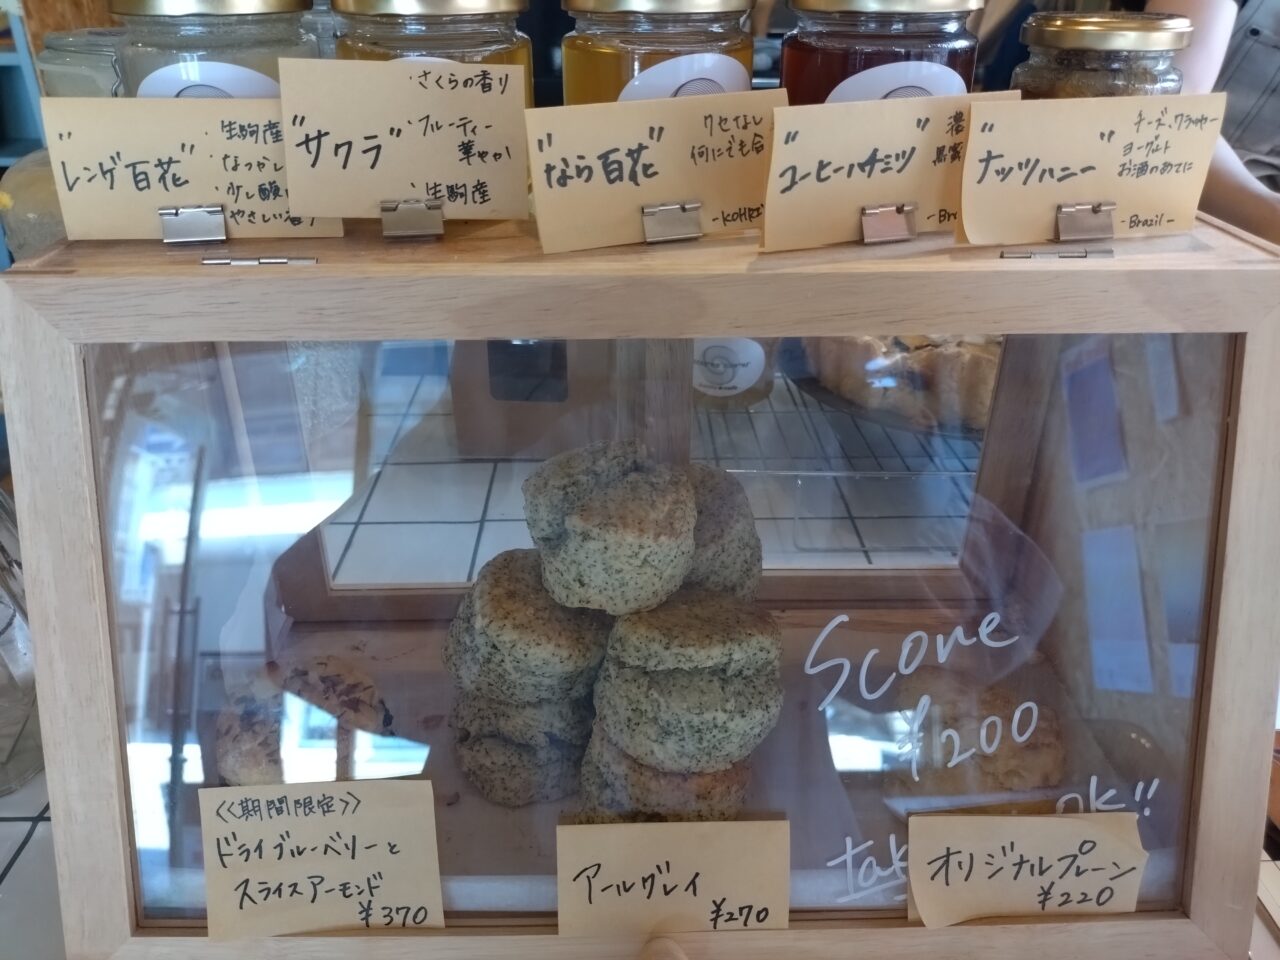 "レンゲ百花"
・生駒産
・なつかし
・少し酸
やさしい香り
"サクラ"
・さくらの香り
・フルーティー
華やか
・生駒産
"なら百花"
クセなし
何にでも合
"コーヒーハチミツ"
濃
黒蜜
"ナッツハニー"
チーズ、クラッカー
ヨーグルト
お酒のあてに
-Brazil-
Scone
¥200
OK!!
<<期間限定>>
ドライブルーベリーと
スライスアーモンド
¥370
アールグレイ
¥270
オリジナルプレーン
¥220